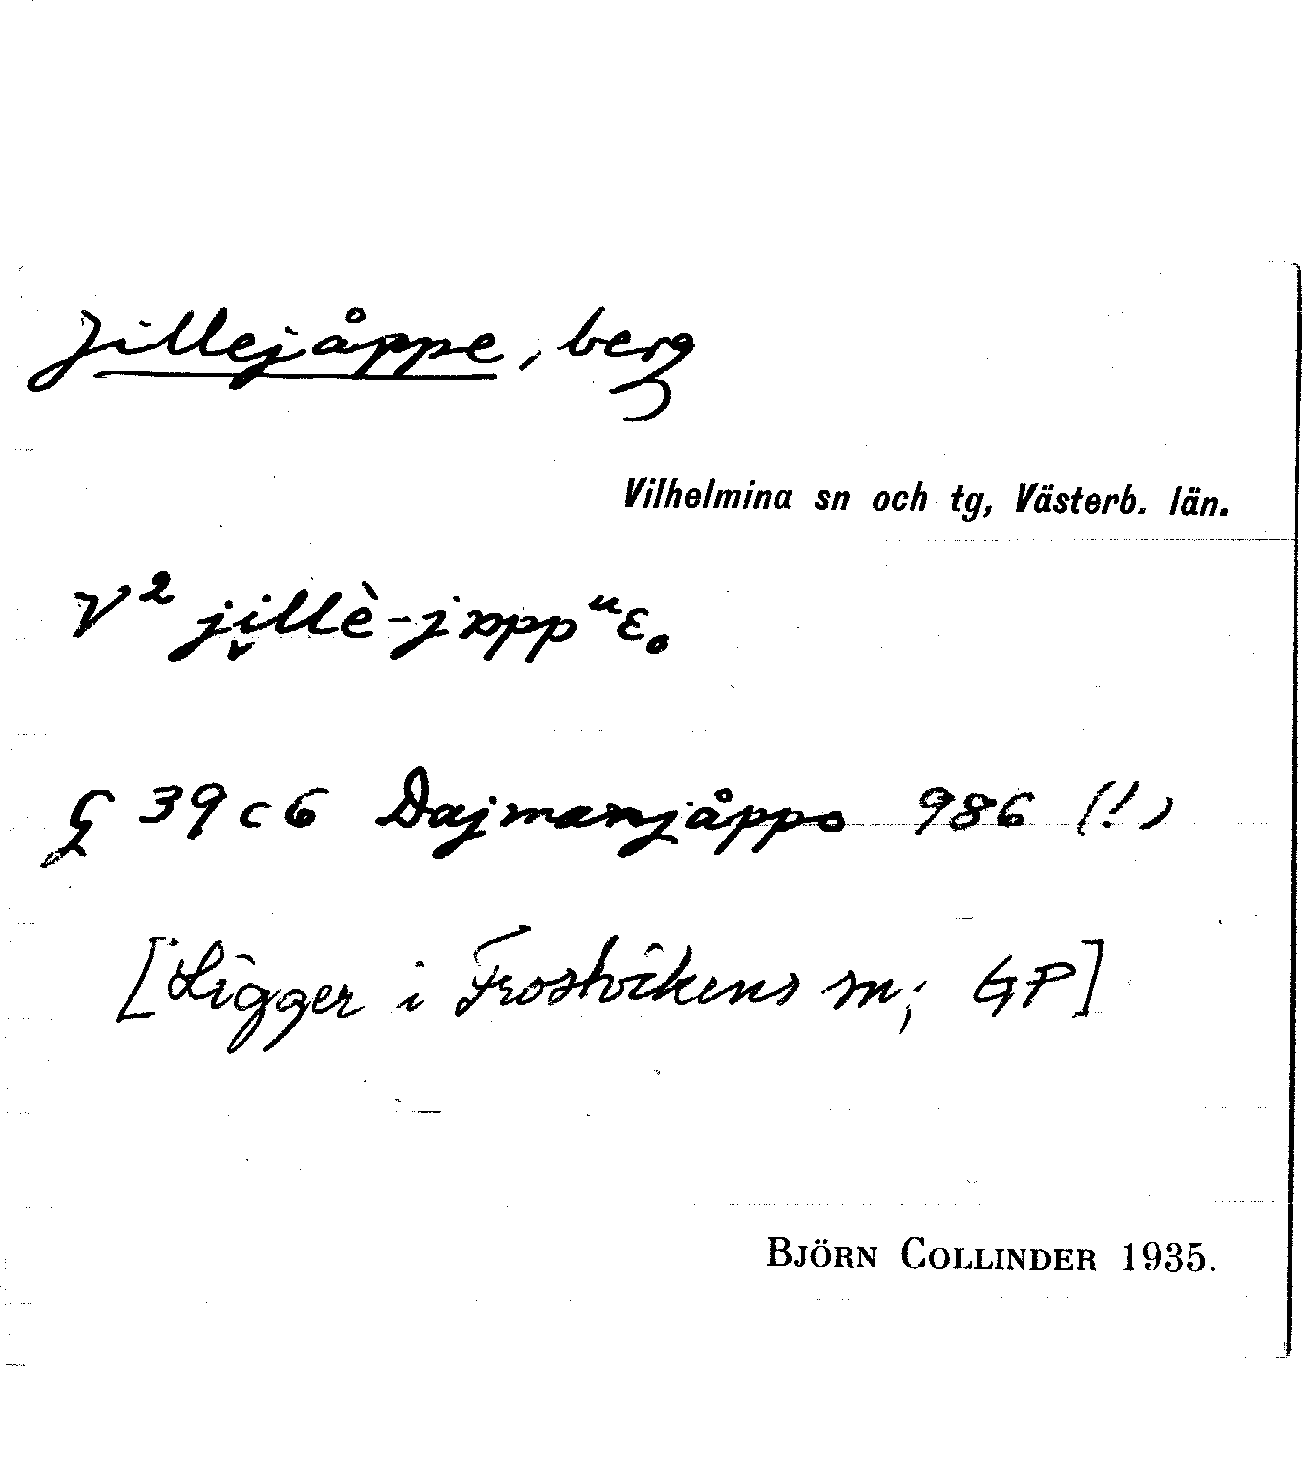 Jillejåppe, berg
Vilhelmina sn och tg, Västerb. län.
V² ji̬llè-jɒppᵘɛ̥
G 39 c 6 Dajmanjåppo 986 (!)
[Ligger i Frostvikens sn; GP]
BJÖRN COLLINDER 1935.